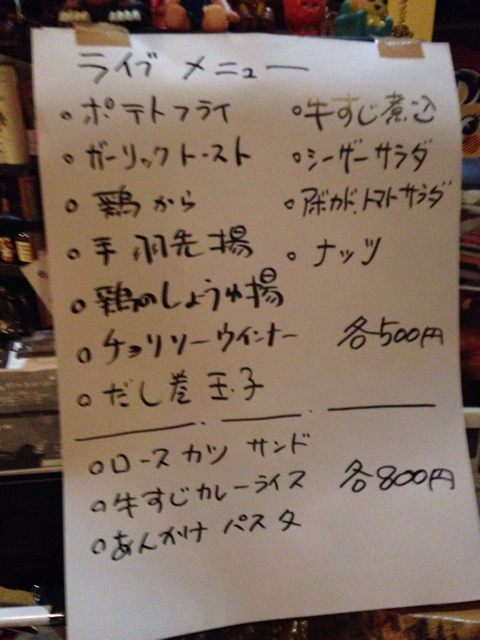 ライブ メニュー
○ ポテトフライ
○ ガーリックトースト
○ 鶏から
○ 手羽先揚
○ 鶏のしょうゆ揚
○ チョリソーウインナー
○ だし巻玉子
○ 牛すじ煮込
○ シーザーサラダ
○ アボカド、トマトサラダ
○ ナッツ
各500円
○ ロースカツ サンド
○ 牛すじカレーライス
○ あんかけ パスタ
各800円